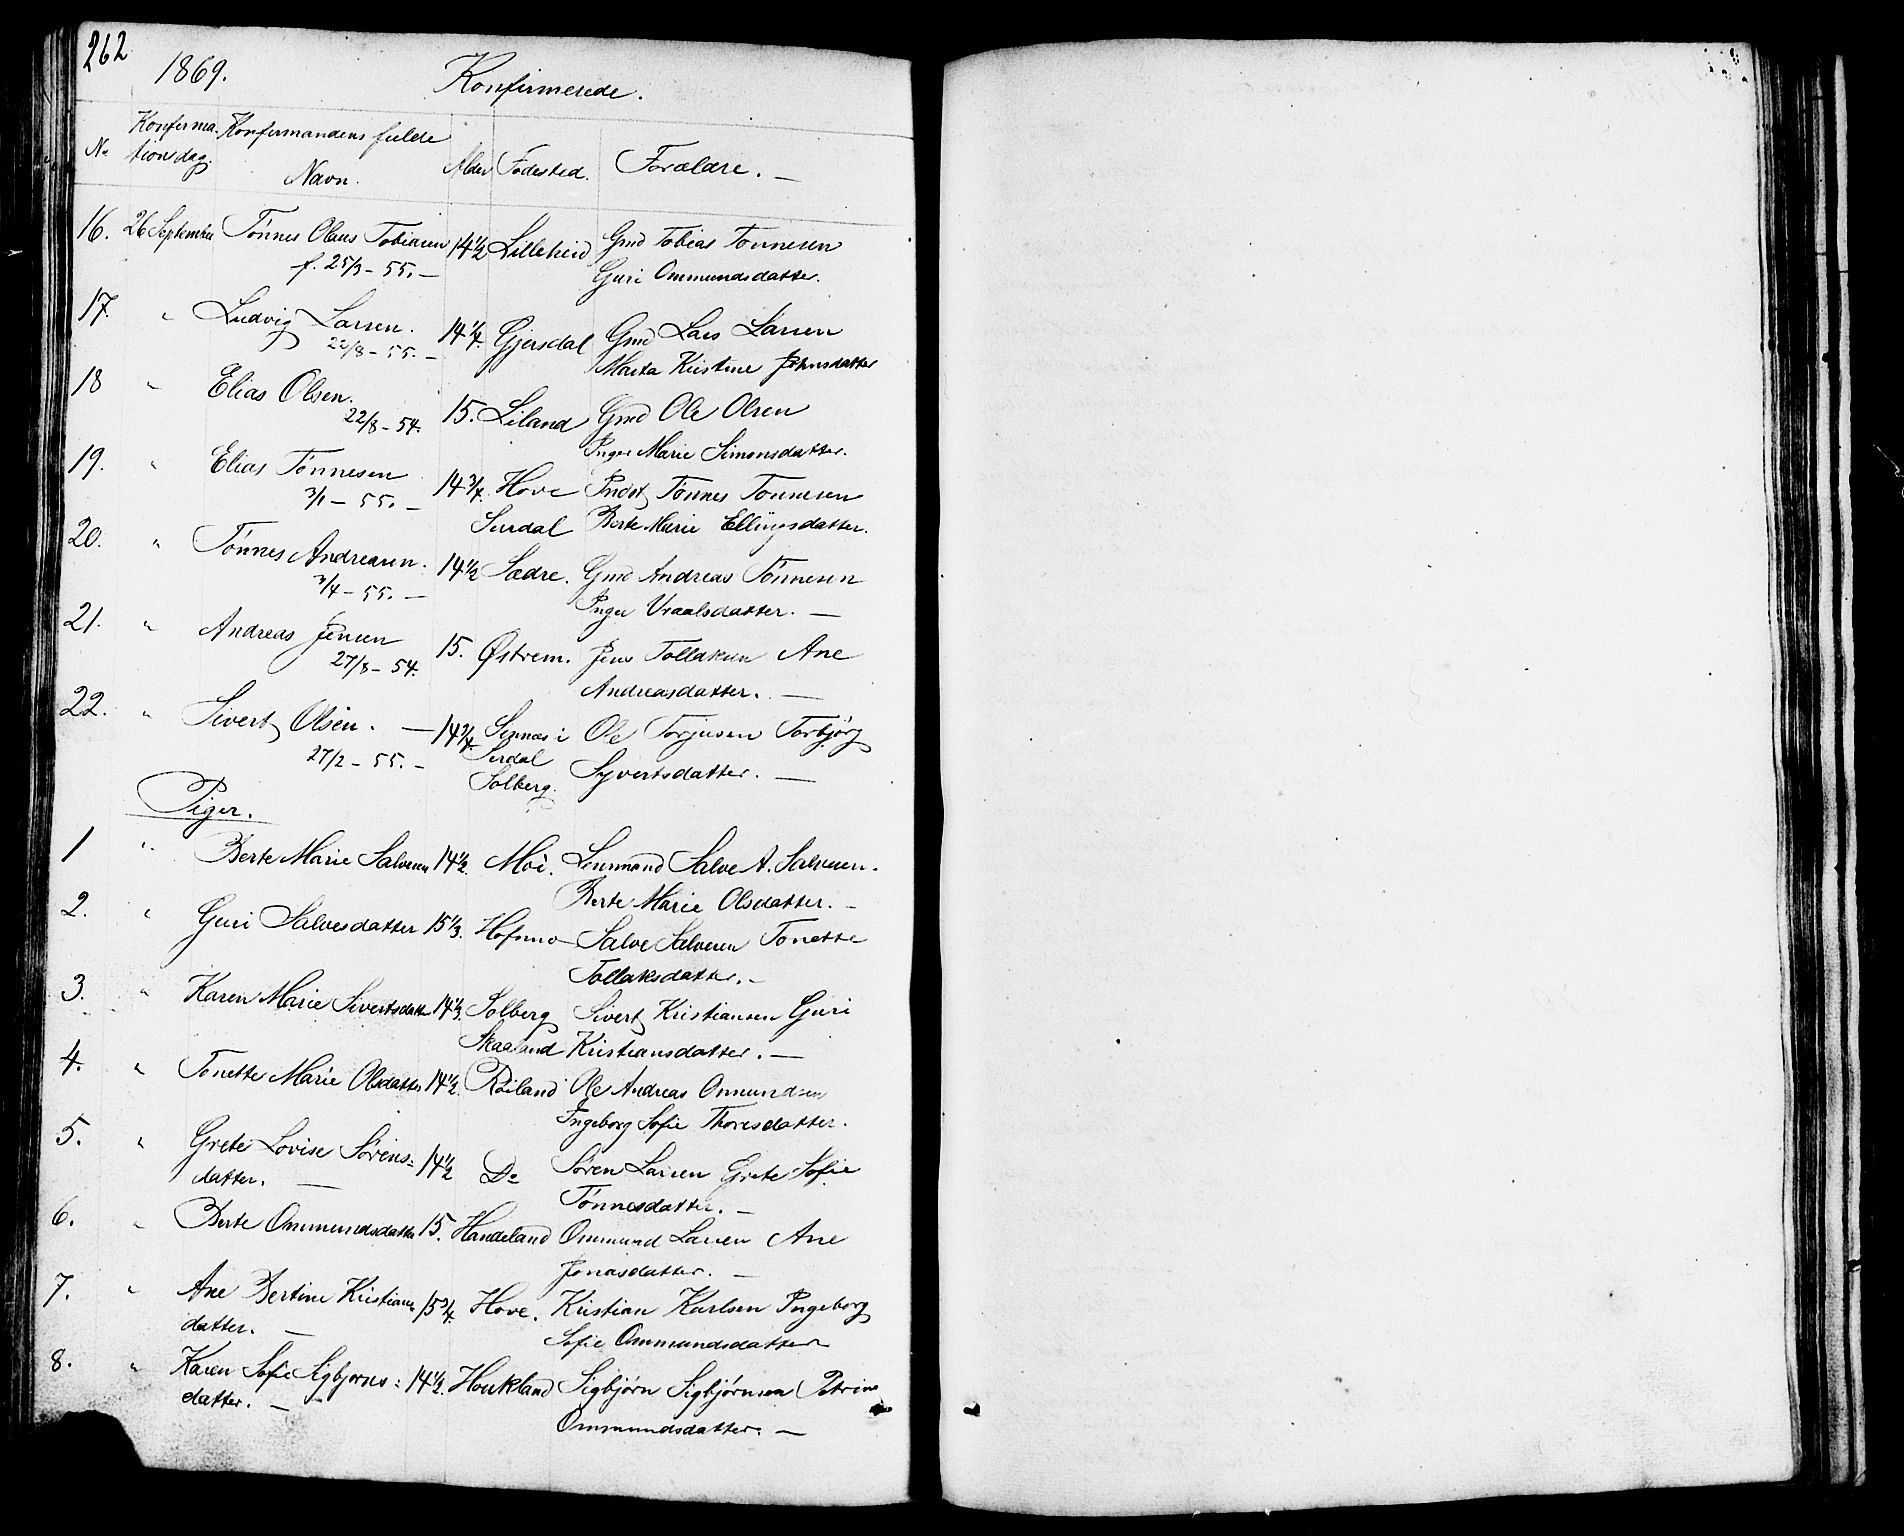 262
1869. Konfirmerede.
No Konfirma- tionsdag. Konfirmandens fulde Navn. Alder Fødested. Forældre. —
16. 26 September Tönnes Olaus Tobiasen 14½ Lilleheid Gmd Tobias Tönnesen
f. 25/3 – 55. — Guri Ommundsdatter.
17. " Ludvig Larsen. 14¼ Gjersdal Gmd Lars Larsen
22/8 – 55. — Marta Kristine Johnsdatter
18 " Elias Olsen. 15. Liland Gmd Ole Olsen
22/8 – 54. Inger Marie Simonsdatter.
19. " Elias Tönnesen 14¾ Hove Indst Tönnes Tönnesen
3/1 – 55. — Surdal Berte Marie Ellingsdatter.
20. " Tönnes Andreasen. 14½ Sædre. Gmd Andreas Tönnesen
3/4 – 55. — Inger Vraalsdatter. —
21. " Andreas Jensen 15. Østrem. Jens Tollaksen Ane
27/8 – 54. Andreasdatter. —
22. " Sivert Olsen. — 14¾ Sinnæs i Ole Torjusen Torbjörg
27/2 – 55. — Sirdal Syvertsdatter. —
Solberg.
Piger.
1 " Berte Marie Salvesen 14½ Moi. Lensmand Salve A. Salvesen.
Berte Marie Olsdatter. —
2. " Guri Salvesdatter 15⅓. Hofsmo Salve Salvesen Tonette
Tollaksdatter. —
3. " Karen Marie Sivertsdatter 14⅓. Solberg Sivert Kristiansen Guri
Skaaland Kristiansdatter. —
4. " Tonette Marie Olsdatter 14½. Röiland Ole Andreas Ommundsen
Ingeborg Sofie Thoresdatter.
5. " Grete Lovise Sörens= 14½ Do Sören Larsen Grete Sofie
datter. — Tönnesdatter. —
6. " Berte Ommundsdatter 15. Handeland Ommund Larsen Ane
Jonasdatter. —
7. " Ane Bertine Kristians 15¾. Hove. Kristian Karlsen Ingeborg
datter. — Sofie Ommundsdatter
8. " Karen Sofie Sigbjörns= 14½. Houkland Sigbjörn Sigbjörnsen Petrine
datter. — Ommundsdatter. —